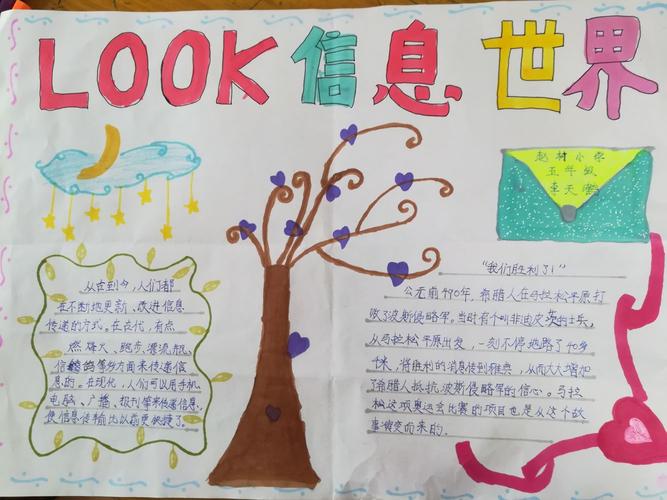 LOOK信息世界
赵村小学
五年级
李天
从古到今,人们都
在不断地更新、改进信息
传递的方式。在古代,有点
燃烽火、跑步、漂流瓶、
信鸽等多方面来传递信
息的。在现代,人们可以用手机
电脑、广播、报刊等来传递信息,
使信息传输比以前更快捷了。
“我们胜利了!”
公元前490年,希腊人在马拉松平原打
败了波斯侵略军。当时有个叫非迪皮茨的士兵,
从马拉松平原出发,一刻不停地跑了40多
千米,将胜利的消息传到雅典,从而大大增加
了希腊人抵抗波斯侵略军的信心。马拉
松这项奥运会比赛的项目也是从这个故
事演变而来的。